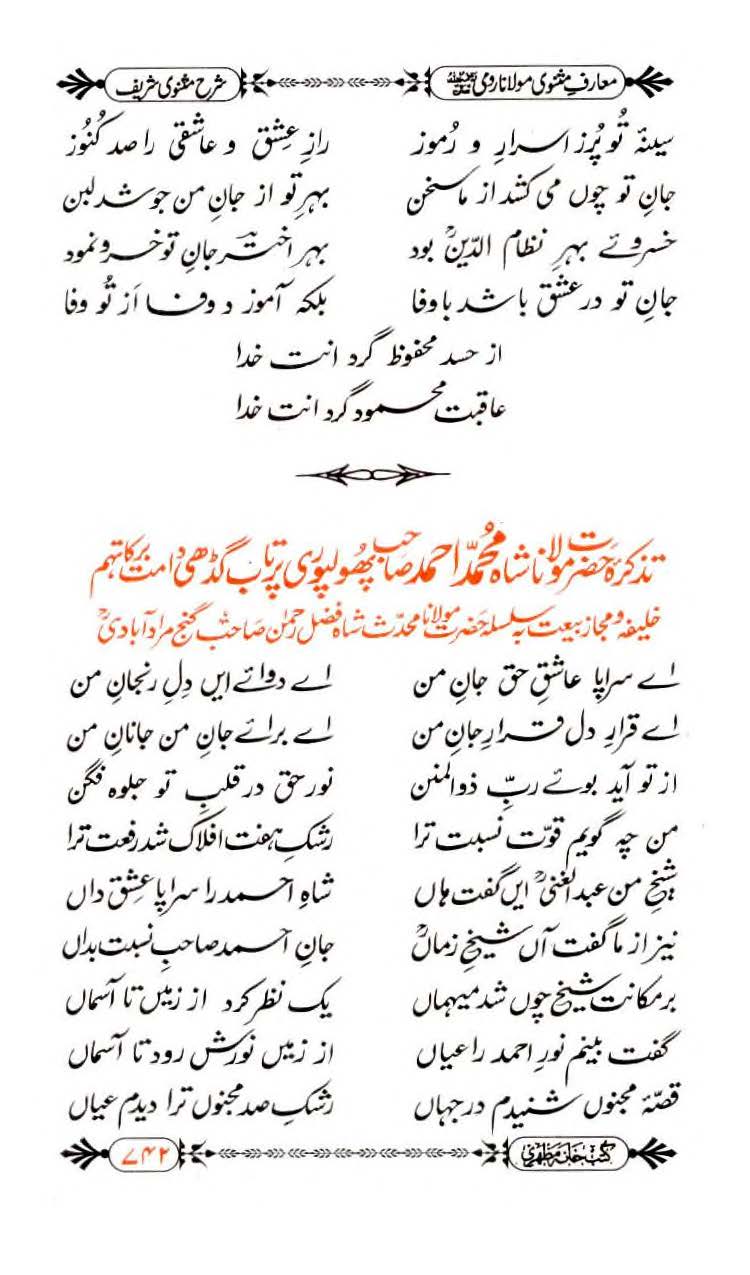 معارفِ مثنوی مولانا رومی رحمۃ اللہ علیہ شرح مثنوی شریف
سینۂ تُو پُر ز اسرارِ و رُموز رازِ عِشق و عاشقی را صد کُنُوز
جانِ تو چوں می کشد از ما سخن بہرِ تو از جانِ من جوشد لبن
خسروئے بہرِ نظام الدّینؒ بود بہر اخترؔ جانِ تو خسرو نمود
جانِ تو در عشق باشد با وفا بلکہ آموزد وفا اَز تُو وفا
از حسد محفوظ گرد انت خدا
عاقبت محمود گرد انت خدا
تذکرۂ حضرت مولانا شاہ مُحمّد احمد صاحب پھُولپوری پرتاب گڈھی دامت برکاتہم
خلیفہ و مجازِ بیعت بہ سلسلہ حضرت مولانا محدّث شاہ فضل رحمٰن صاحب گنج مراد آبادیؒ
اے سراپا عاشقِ حق جانِ من اے دوائے ایں دِلِ رنجانِ من
اے قرارِ دل قرارِ جانِ من اے برائے جانِ من جانانِ من
از تو آید بوئے ربِّ ذوالمنن نورِ حق در قلبِ تو جلوہ فگن
من چہ گویم قوّتِ نسبت ترا رشکِ ہفت افلاک شد رفعت ترا
شیخِ من عبدالغنیؒ ایں گفت ہاں شاہِ احمد را سراپا عِشق داں
نیز از ما گفت آں شیخِ زماںؒ جانِ احمد صاحبِ نسبت بداں
بر مکانت شیخ چوں شد میہماں یک نظر کرد از زمیں تا آسماں
گفت بینم نورِ احمد را عیاں از زمیں نورش رود تا آسماں
قصّۂ مجنوں شنیدم در جہاں رشکِ صد مجنوں ترا دیدم عیاں
کتب خانہ مظہری ۷۴۲